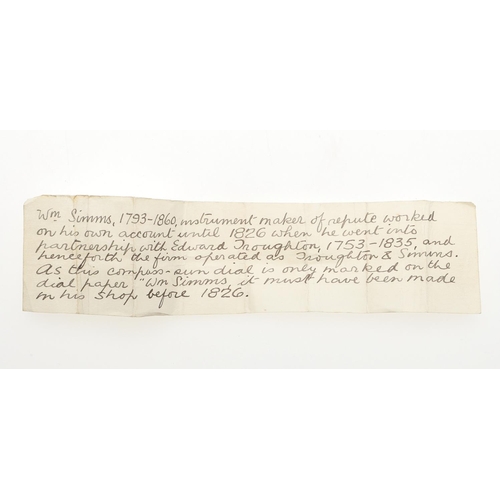 Wm Simms, 1793-1860, instrument maker of repute worked
on his own account until 1826 when he went into
partnership with Edward Troughton, 1753-1835, and
henceforth the firm operated as Troughton & Simms.
As this compass-sun dial is only marked on the
dial paper "Wm Simms, it must have been made
in his shop before 1826.